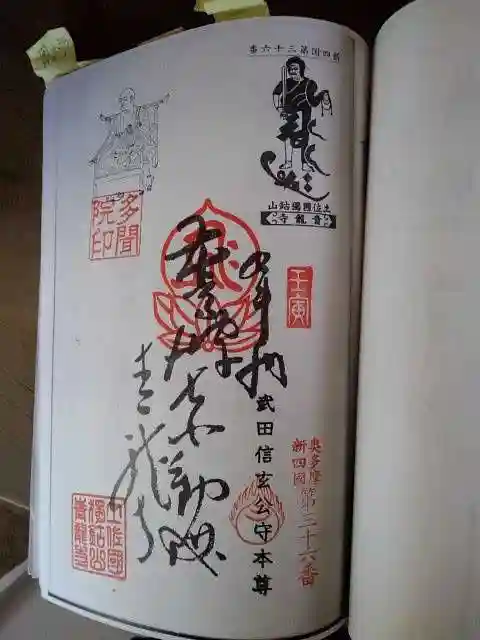 新四国第三十六番
土佐國獨鈷山
青龍寺
多聞
院印
壬寅
奥多摩
新四國第三十六番
武田信玄公守本尊
青龍寺
土佐國
獨鈷山
青龍寺